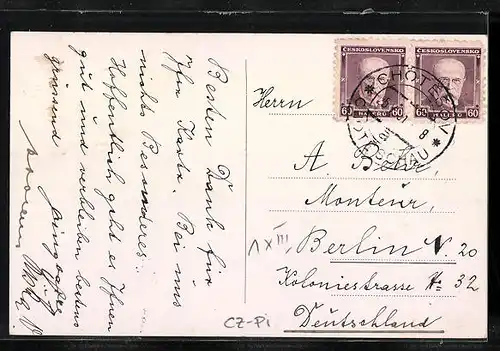 Besten Dank für
Ihre Karte. Bei uns
nichts Besonderes.
Hoffentlich geht es Ihnen
gut und verbleiben bestens
grüssend
ČESKOSLOVENSKO
60 HALÉŘŮ 60
ČESKOSLOVENSKO
60 HALÉŘŮ 60
Herrn
A.
Monteur,
Berlin N. 20
Koloniestrasse No 32
Deutschland
1 XIII,
CZ-Pi